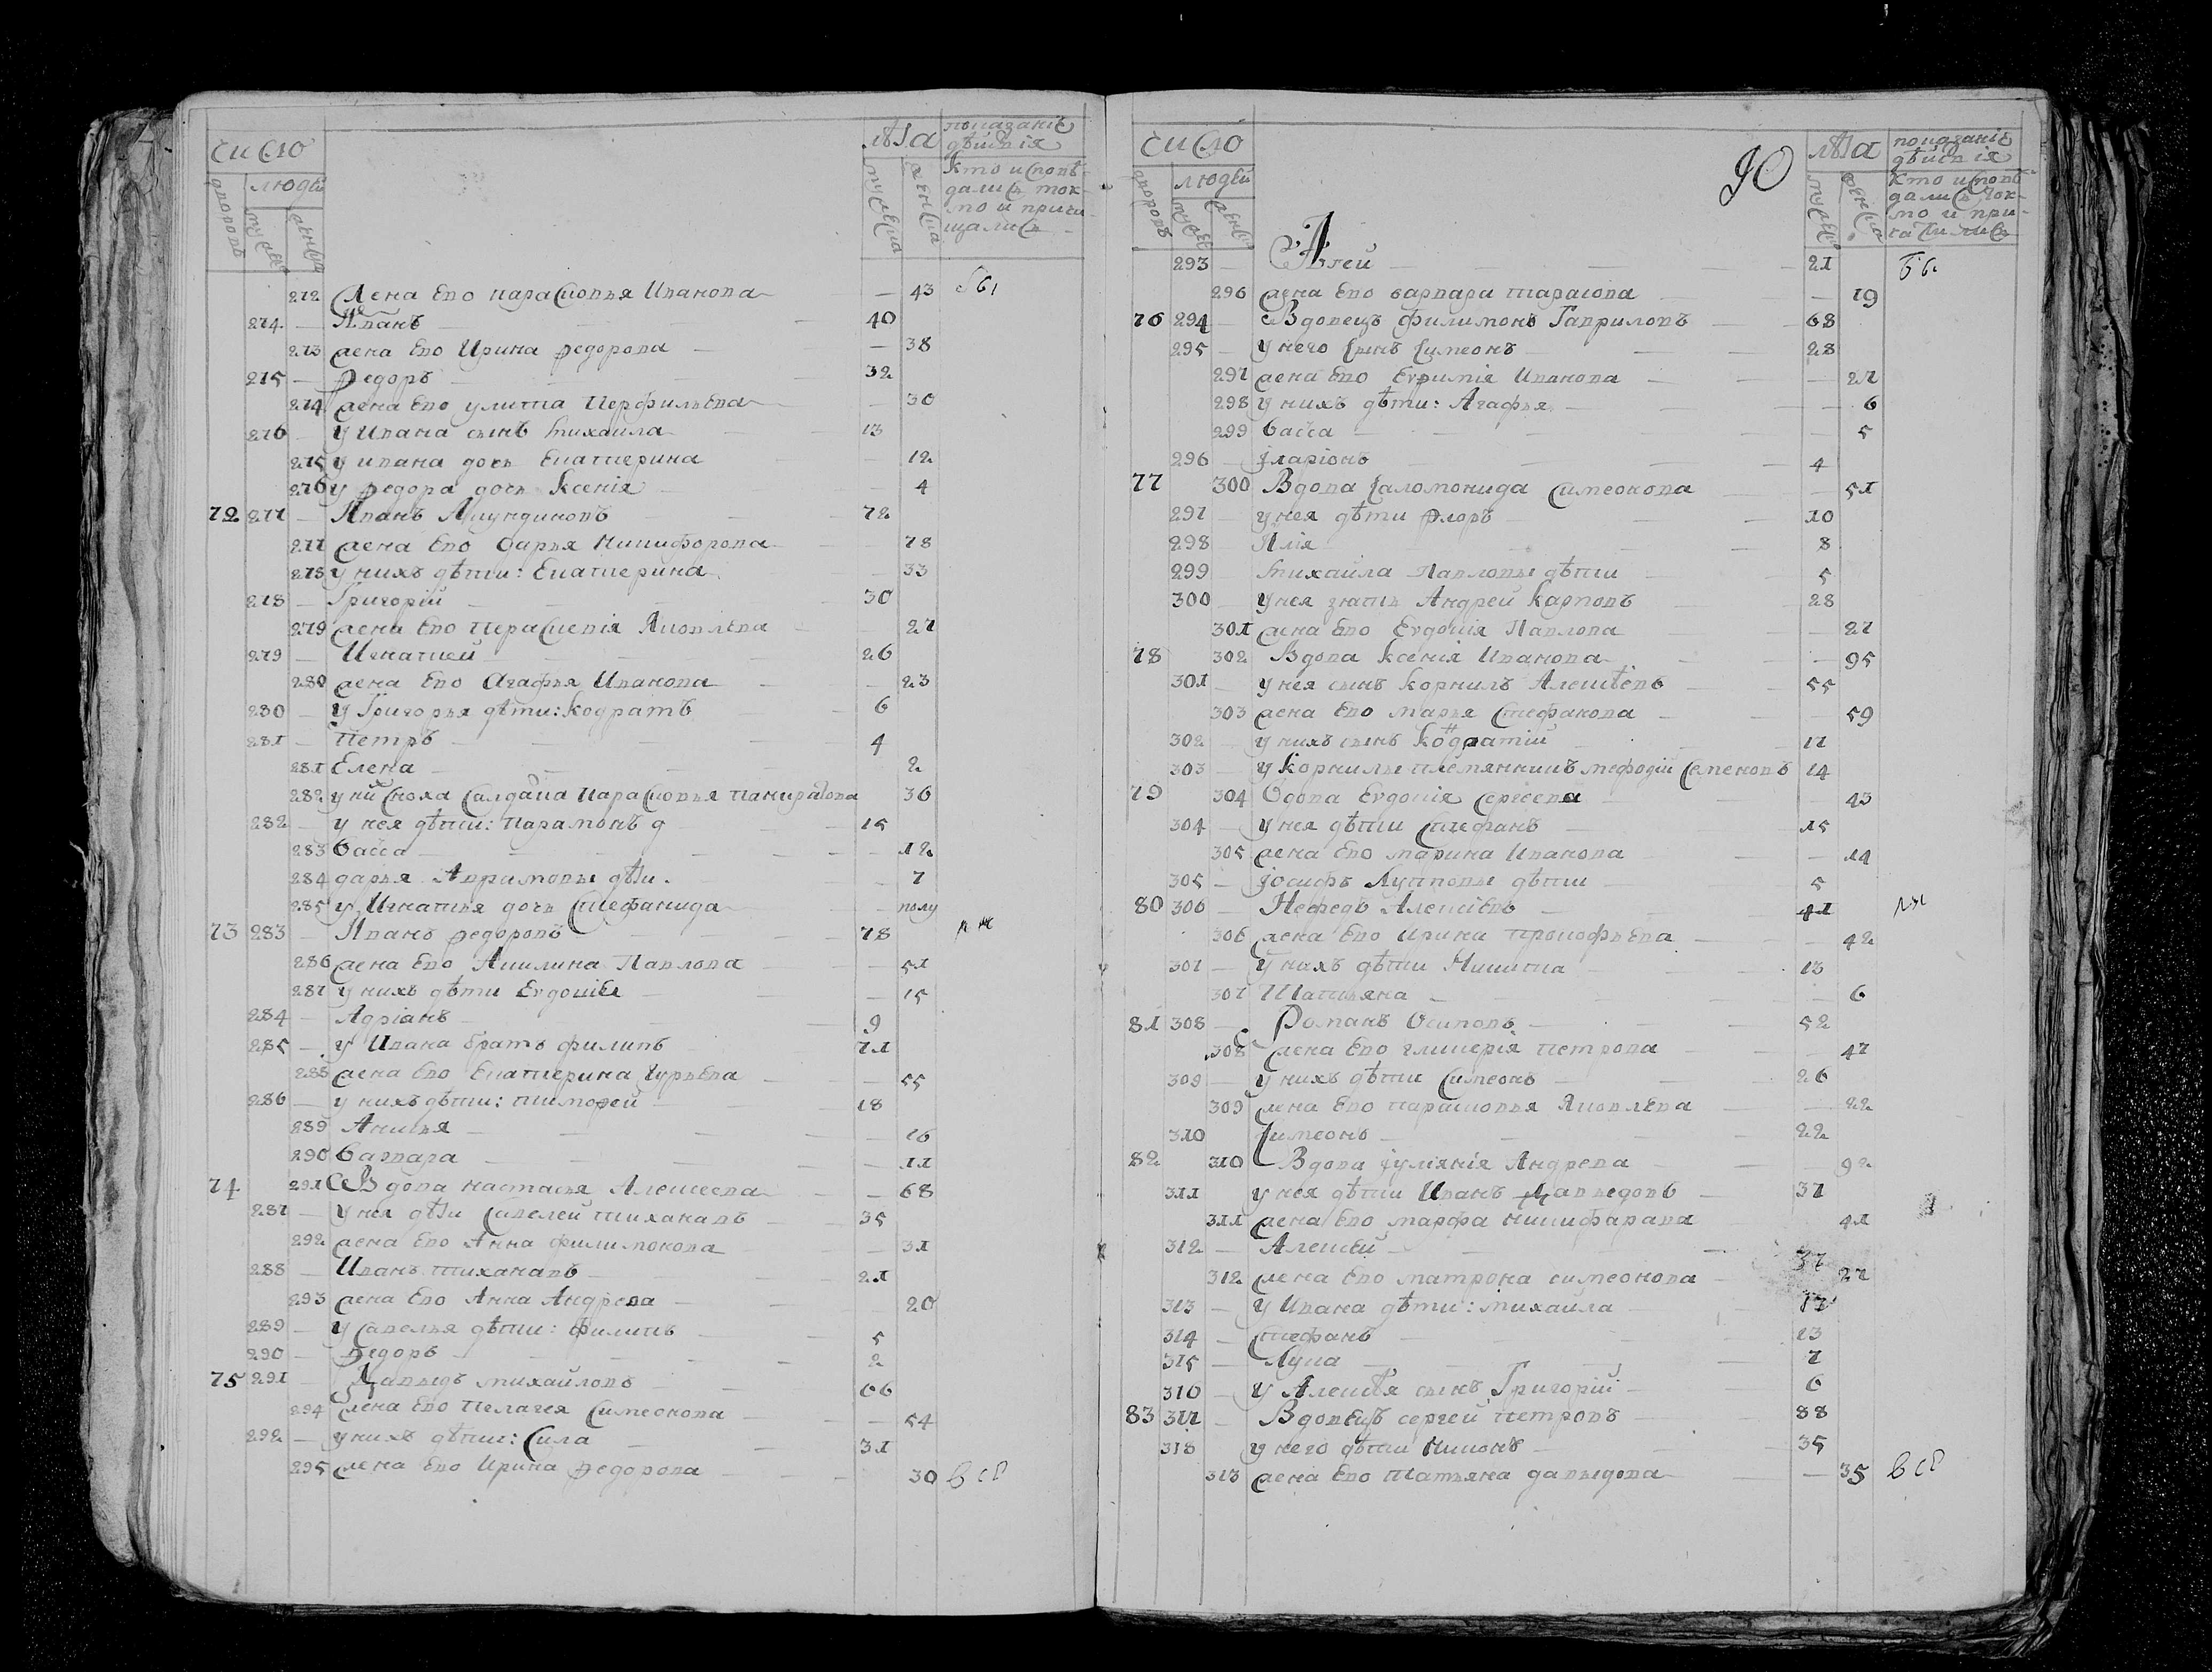 число
людей
дворовъ
мужеска
женска
лѣта
мужеска
женска
показаніе дѣйствія
кто исповѣ-
дались ток-
мо и прича-
щались
272 жена ево парасковья Иванова 43
274 Иванъ 40
273 жена ево Ирина Ѳедорова 38
275 Ѳедоръ 32
274 жена ево улита Перфильева 30
276 у Ивана сынъ михаила 13
275 у ивана дочь екатерина 12
276 у Ѳедора дочь ксенія 4
72 277 Иванъ 72
277 жена ево дарья никифорова 78
278 у нихъ дѣти: екатерина 33
278 Григорій 30
279 жена ево Яковлева 27
279 Игнатей 26
280 жена ево Агафья Иванова 23
280 у Григорья дѣти: кодратъ 6
281 петръ 4
281 Елена 2
282 у ний сноха салдацка парасковья панкратова 36
282 у нея дѣти: парамонъ 15
283 васса 12
284 дарья Аврамовы дѣти 7
285 у Игнатья дочь стефанида полу
73 283 Иванъ Ѳедоровъ 78
286 жена ево Акилина Павлова 51
287 у нихъ дѣти Евдокія 15
284 Адріанъ 9
285 у Ивана братъ филипъ 71
288 жена ево екатерина гурьева 55
286 у нихъ дѣти: тимоѳей 18
289 Анисья 16
290 варвара 11
74 291 Вдова настасья Алексеева 68
287 у нея дѣти савелей тихановъ 35
292 жена ево Анна филимонова 31
288 Иванъ тихановъ 21
293 жена ево Анна Андрева 20
289 у савелья дѣти: филипъ 5
290 Ѳедоръ 2
75 291 Давыдъ михайловъ 66
294 жена ево пелагея симеонова 54
292 у нихъ дѣти: сила 31
295 жена ево Ирина Ѳедорова 30
число
людей
дворовъ
мужеска
женска
90
лѣта
мужеска
женска
показаніе дѣйствія
кто исповѣ-
дались ток-
мо и при-
чащались
293 21
296 жена ево варвара тарасова 19
76 294 Вдовецъ филимонъ Гавриловъ 68
295 у него сынъ симеонъ 28
297 жена ево Евѳимія Иванова 27
298 у нихъ дѣти: Агафья 6
299 васса 5
296 Іларіонъ 4
77 300 Вдова саломонида симеонова 51
297 у нея дѣти Ѳлоръ 10
298 Илія 8
299 михаила Павловы дѣти 5
300 у нея зять Андрей карповъ 28
301 жена ево Евдокія Павлова 27
78 302 Вдова ксенія Иванова 95
301 у нея сынъ корнилъ Алексѣевъ 55
303 жена ево марья стефанова 59
302 у нихъ сынъ кондратій 17
303 у корнилы племянникъ меѳодій семеновъ 14
79 304 Вдова Евдокія сергеева 43
304 у нея дѣти стефанъ 15
305 жена ево марина Иванова 14
305 Іосифъ дѣти 5
80 306 Нефедъ Алексѣевъ 41
306 жена ево Ирина прокофьева 42
307 у нихъ дѣти Никита 13
307 Татьяна 6
81 308 Романъ Осиповъ 52
308 жена ево гликерія петрова 47
309 у нихъ дѣти симеонъ 26
309 жена ево парасковья Яковлева 22
310 симеонъ 22
82 310 Вдова Іулианія Андрева 92
311 у нея дѣти Иванъ Давыдовъ 37
311 жена ево марфа никифарава 41
312 Алексѣй 37
312 жена ево матрона симеонова 27
313 у Ивана дѣти: михаила 17
314 стефанъ 13
315 Лука 7
316 у Алексѣя сынъ Григорій 6
83 317 Вдовецъ сергей петровъ 88
318 у него дѣти 35
313 жена ево татьяна давыдова 35